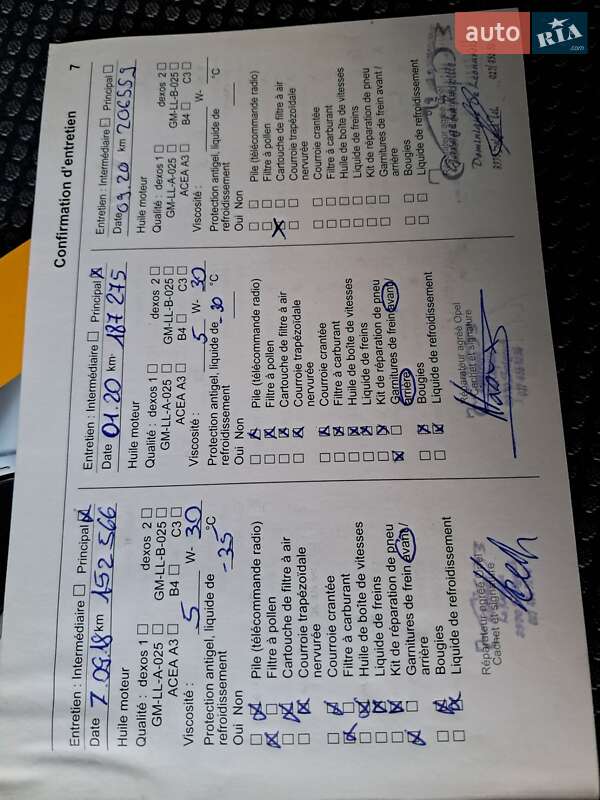 auto RIA .com
Confirmation d'entretien
7
Entretien : Intermédiaire Principal
Date 7.09.18 km 152 566
Huile moteur
Qualité : dexos 1 dexos 2
GM-LL-A-025 GM-LL-B-025
ACEA A3 B4 C3
Viscosité : 5 W- 30
Protection antigel, liquide de
refroidissement -35 °C
Oui Non
Pile (télécommande radio)
Filtre à pollen
Cartouche de filtre à air
Courroie trapézoïdale
nervurée
Courroie crantée
Filtre à carburant
Huile de boîte de vitesses
Liquide de freins
Kit de réparation de pneu
Garnitures de frein avant /
arrière
Bougies
Liquide de refroidissement
Réparateur agréé Opel
Cachet et signature
Entretien : Intermédiaire Principal
Date 01.20 km 187 275
Huile moteur
Qualité : dexos 1 dexos 2
GM-LL-A-025 GM-LL-B-025
ACEA A3 B4 C3
Viscosité : 5 W- 30
Protection antigel, liquide de
refroidissement -30 °C
Oui Non
Pile (télécommande radio)
Filtre à pollen
Cartouche de filtre à air
Courroie trapézoïdale
nervurée
Courroie crantée
Filtre à carburant
Huile de boîte de vitesses
Liquide de freins
Kit de réparation de pneu
Garnitures de frein avant /
arrière
Bougies
Liquide de refroidissement
Réparateur agréé Opel
Cachet et signature
Entretien : Intermédiaire Principal
Date 09.20 km 206559
Huile moteur
Qualité : dexos 1 dexos 2
GM-LL-A-025 GM-LL-B-025
ACEA A3 B4 C3
Viscosité : W-
Protection antigel, liquide de
refroidissement °C
Oui Non
Pile (télécommande radio)
Filtre à pollen
Cartouche de filtre à air
Courroie trapézoïdale
nervurée
Courroie crantée
Filtre à carburant
Huile de boîte de vitesses
Liquide de freins
Kit de réparation de pneu
Garnitures de frein avant /
arrière
Bougies
Liquide de refroidissement